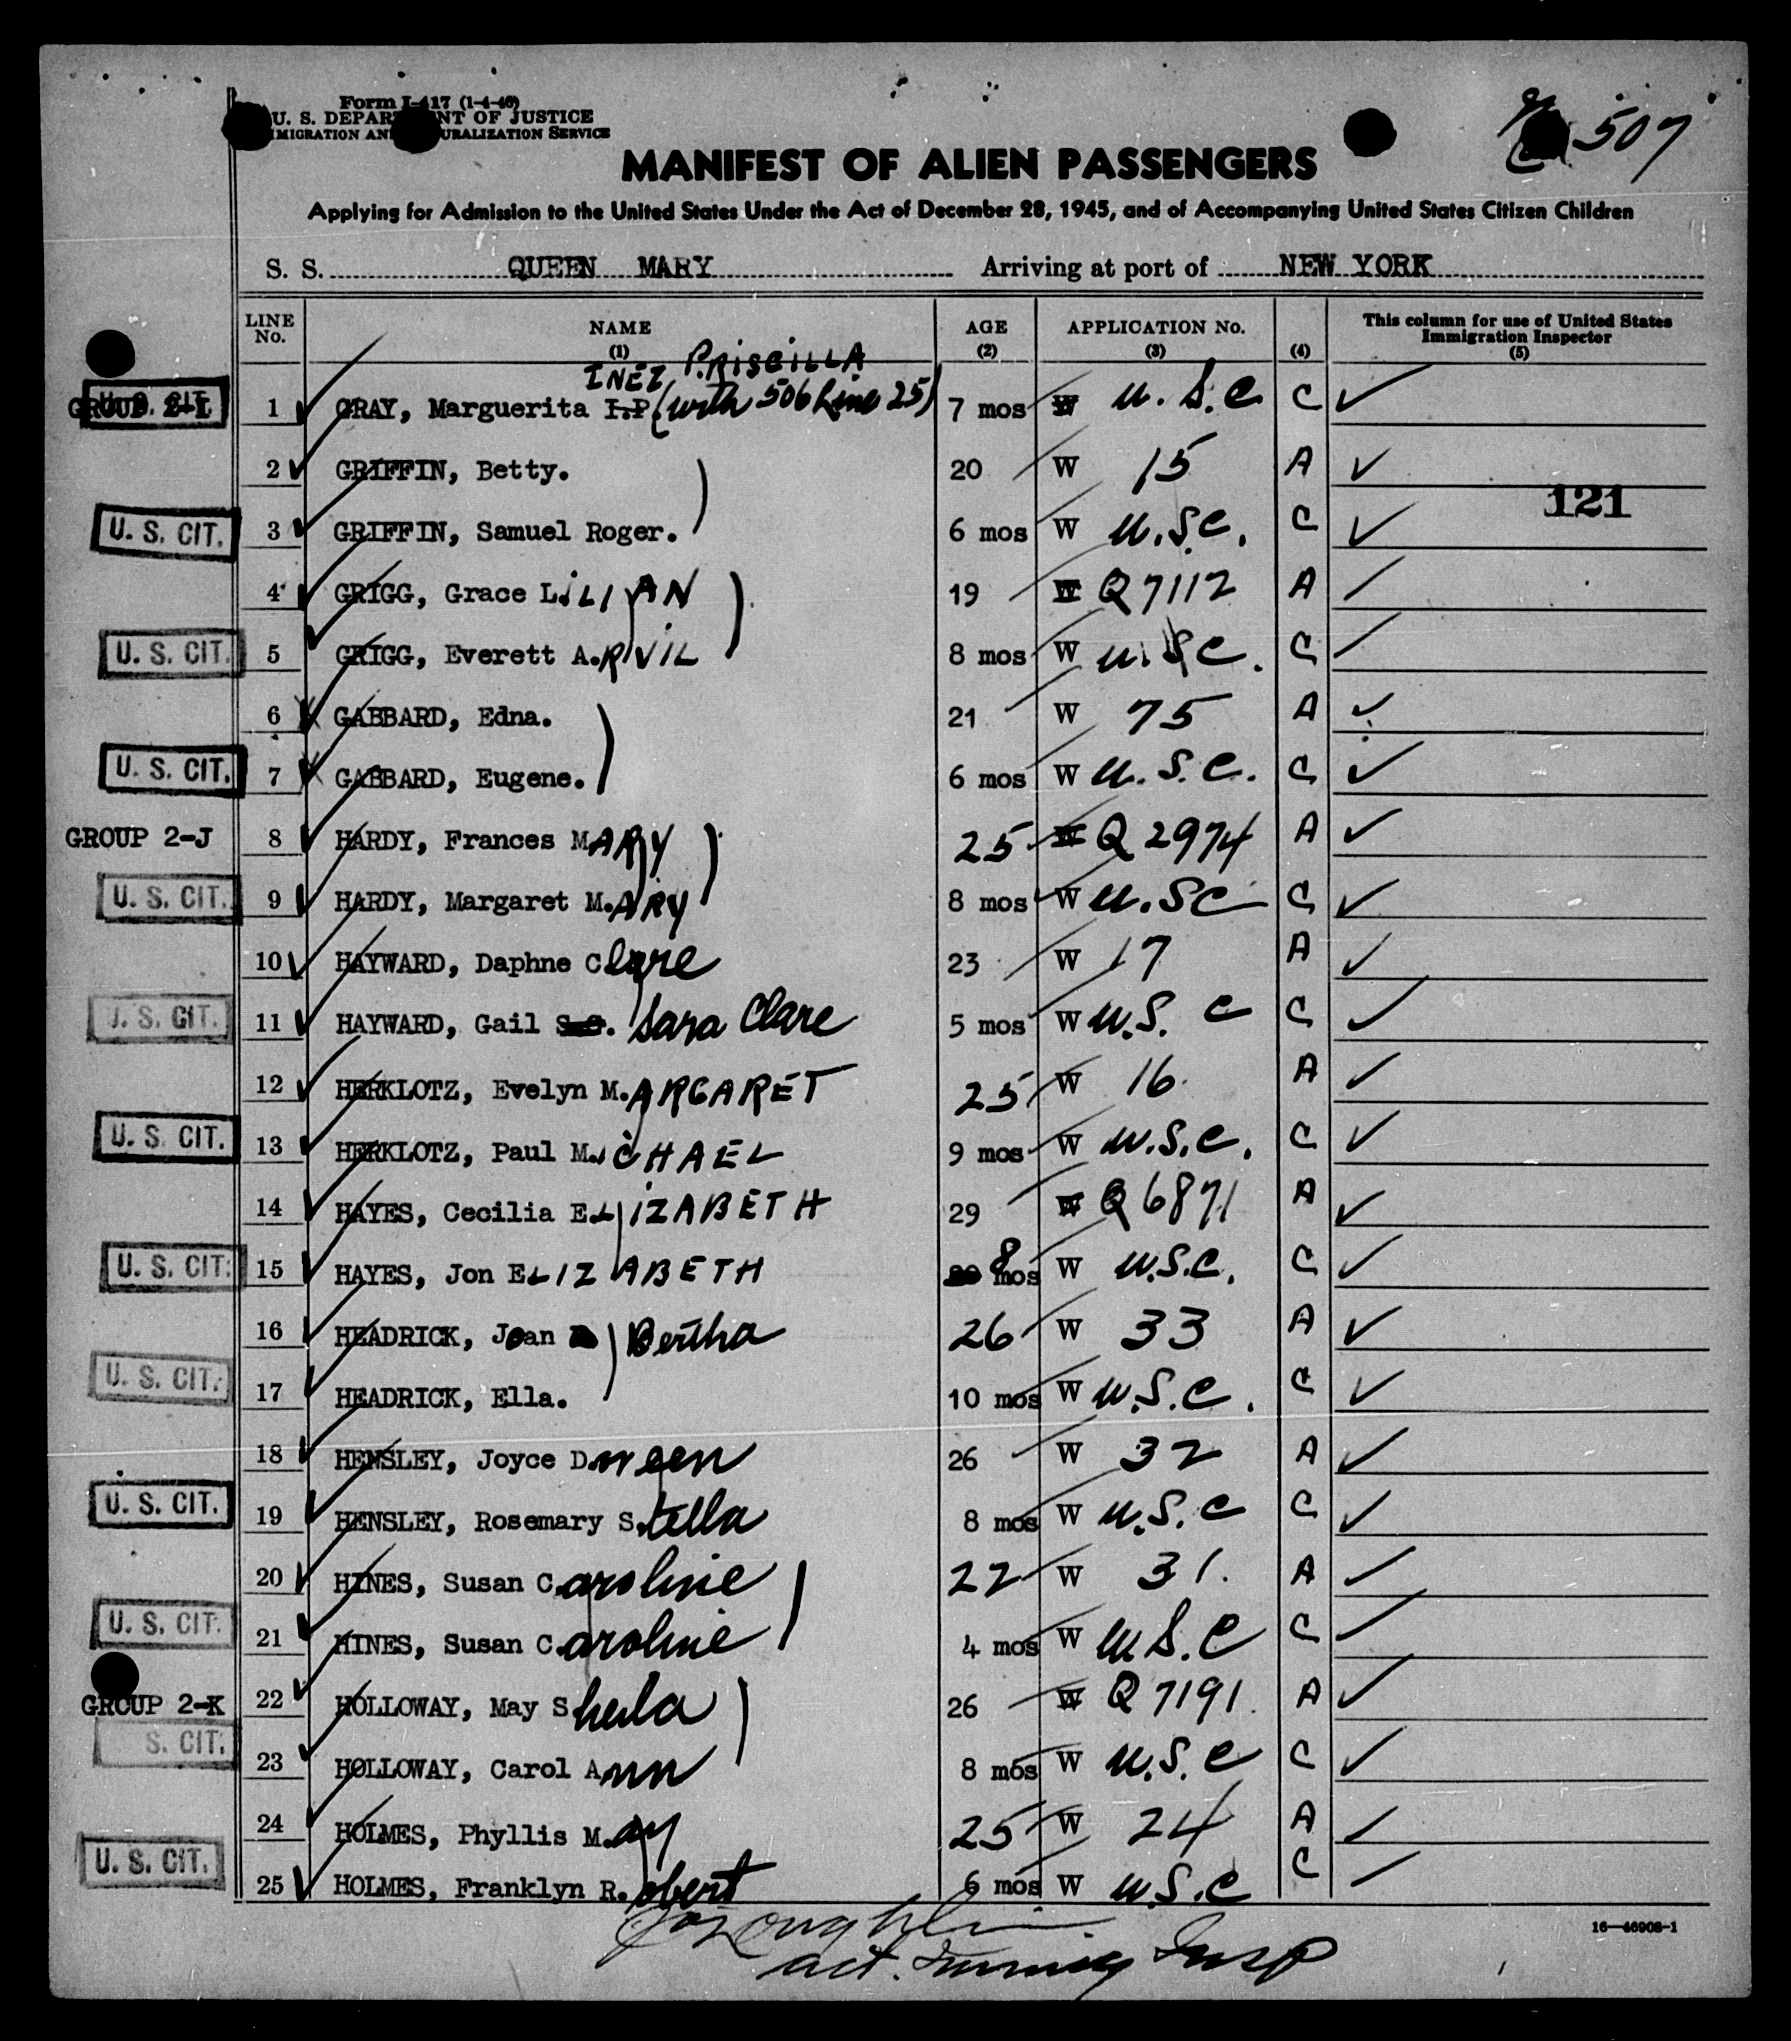 Form I-417 (1-4-46)
U. S. DEPAR NT OF JUSTICE
MIGRATION AN URALIZATION SERVICE
507
MANIFEST OF ALIEN PASSENGERS
Applying for Admission to the United States Under the Act of December 28, 1945, and of Accompanying United States Citizen Children
S. S. QUEEN MARY Arriving at port of NEW YORK
LINE No. NAME (1) AGE (2) APPLICATION No. (3) (4) This column for use of United States Immigration Inspector (5)
INEZ PRISCILLA
GROUP 2-L U. S. CIT. 1 GRAY, Marguerita I.P. (with 506 Line 25) 7 mos W U.S.C C
2 GRIFFIN, Betty. 20 W 15 A
121
U. S. CIT. 3 GRIFFIN, Samuel Roger. 6 mos W U.S.C. C
4 GRIGG, Grace LILIAN 19 W Q 7112 A
U. S. CIT. 5 GRIGG, Everett A.RVIL 8 mos W U.S.C. C
6 GABBARD, Edna. 21 W 75 A
U. S. CIT. 7 GABBARD, Eugene. 6 mos W U.S.C. C
GROUP 2-J 8 HARDY, Frances MARY 25 W Q 2974 A
U. S. CIT. 9 HARDY, Margaret M.ARY 8 mos W U.S.C C
10 HAYWARD, Daphne Clare 23 W 17 A
U. S. CIT. 11 HAYWARD, Gail Sara Clare 5 mos W U.S.C C
12 HERKLOTZ, Evelyn M.ARGARET 25 W 16 A
U. S. CIT. 13 HERKLOTZ, Paul M.ICHAEL 9 mos W U.S.C. C
14 HAYES, Cecilia ELIZABETH 29 W Q 6871 A
U. S. CIT. 15 HAYES, Jon ELIZABETH 8 mos W U.S.C. C
16 HEADRICK, Joan Bertha 26 W 33 A
U. S. CIT. 17 HEADRICK, Ella. 10 mos W U.S.C. C
18 HENSLEY, Joyce D 26 W 32 A
U. S. CIT. 19 HENSLEY, Rosemary S.tella 8 mos W U.S.C C
20 HINES, Susan C.aroline 22 W 31. A
U. S. CIT. 21 HINES, Susan C.aroline 4 mos W U.S.C C
GROUP 2-K 22 HOLLOWAY, May Sheila 26 W Q 7191. A
S. CIT. 23 HOLLOWAY, Carol Ann 8 mos W U.S.C C
24 HOLMES, Phyllis M.ay 25 W 24 A
U. S. CIT. 25 HOLMES, Franklyn R.obert 6 mos W U.S.C C
16—46908-1
act. Immig Insp